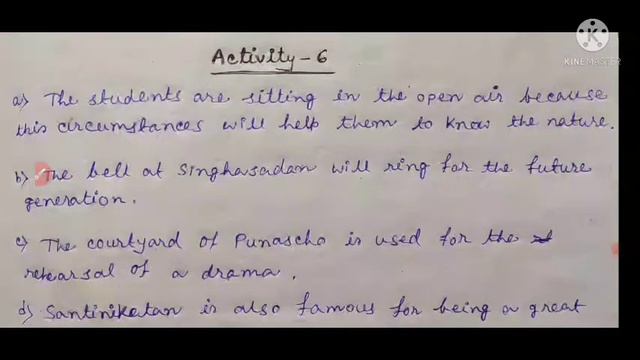 Activity - 6
KINEMASTER
a) The students are sitting in the open air because
this circumstances will help them to know the nature.
b) The bell at Singhasadan will ring for the future
generation.
c) The courtyard of Punascha is used for the
rehearsal of a drama.
d) Santiniketan is also famous for being a great